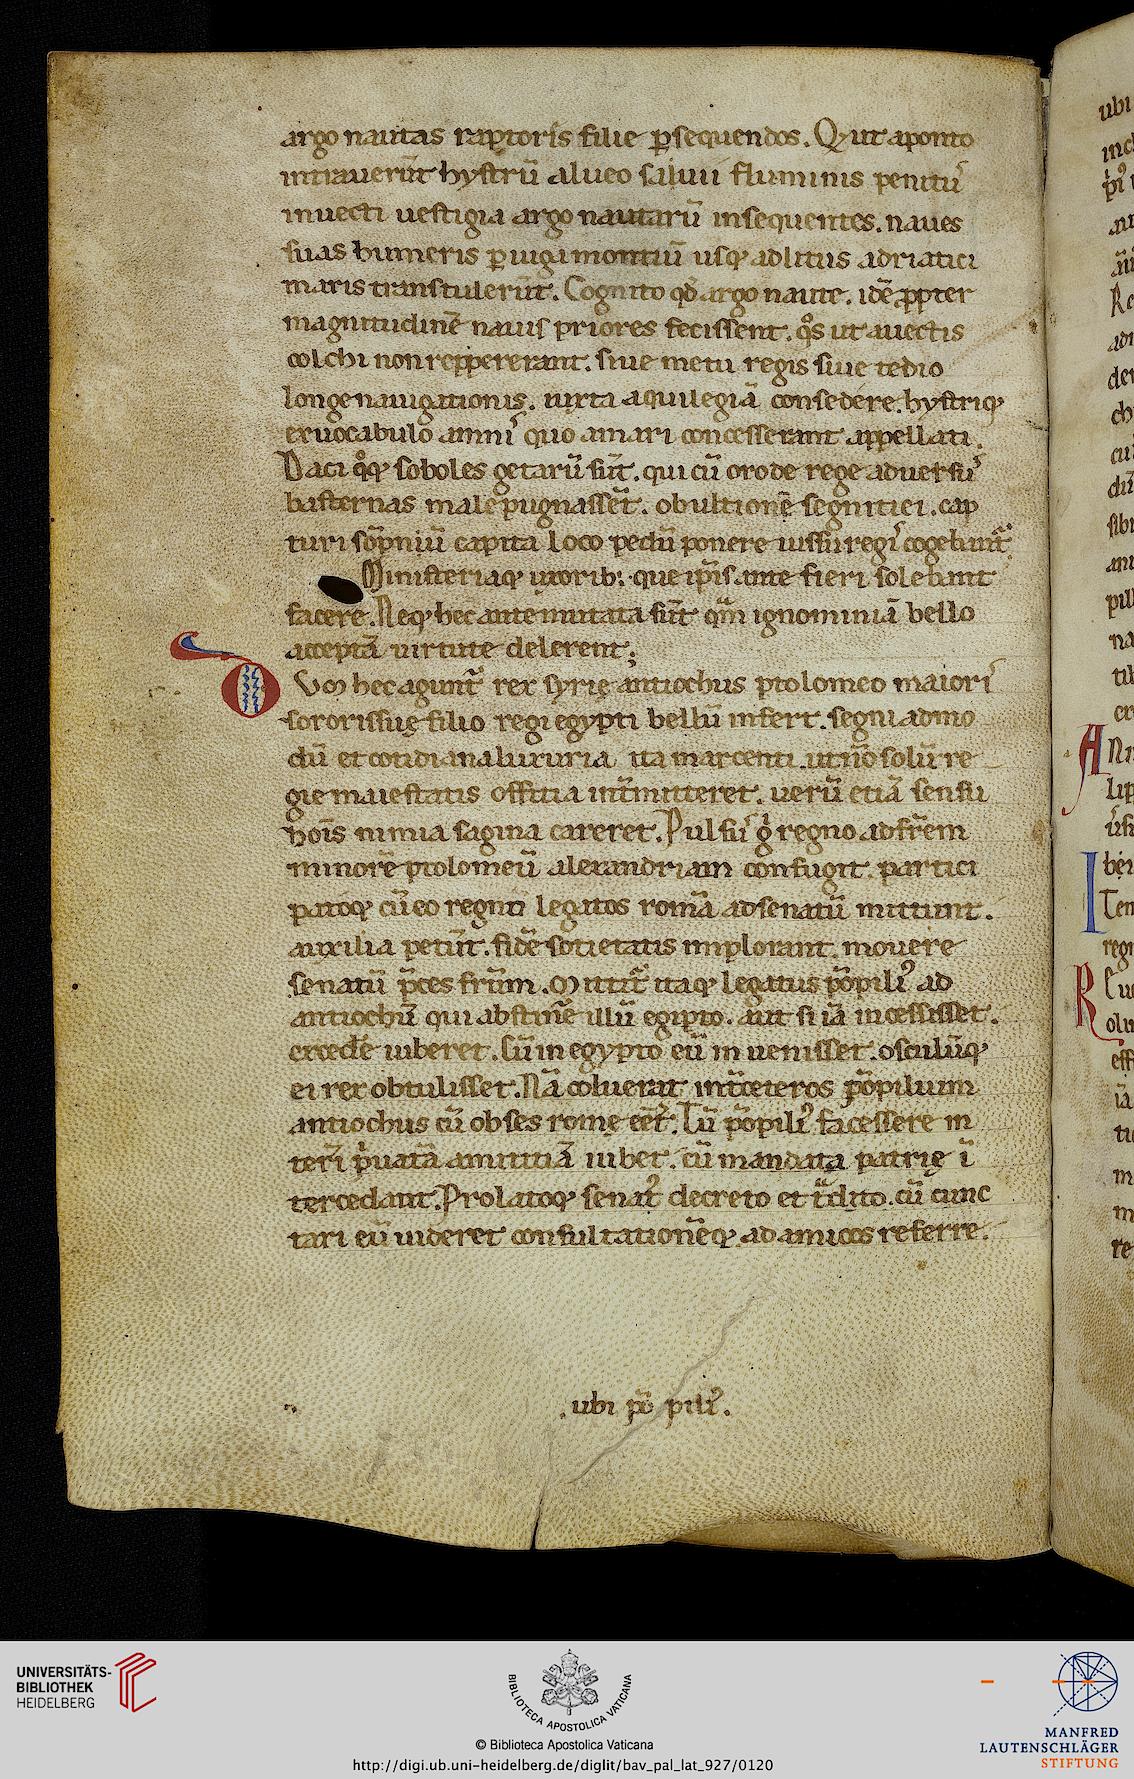 argo nautas raptoris filie ꝑsequendos. Qui ut aponto
intrauerūt hystrū alueo saluii fluminis penitus
inuecti uestigia argo nautarū insequentes. naues
suas humeris ꝑ iuga montiū usqꝫ ad litus adriatici
maris transtulerūt. Cognito qđ argo naute. idē ꝓpter
magnitudinē nauis priores fecissent. qͦs ut auectis
colchi non reppererant. siue metu regis siue tedio
longe nauigationis. iuxta aquilegiā consedere. hystriqꝫ
ex uocabulo amnis quo amari concesserant appellati.
Daci qͦqꝫ soboles getarū sūt. qui cū orode rege aduersus
basternas male pugnassēt. ob ultionē segnitiei. cap
turi sōpniū capita loco pedū ponere iussu regis cogebant̄.
Ministeriaqꝫ uxorib; que ip̄is ante fieri solebant
facere. Neqꝫ hec ante mutata sūt qm̄ ignominiā bello
acceptā uirtute delerent;
Vm hec agunt̄ rex syrię antiochus ptolomeo maioris
sororis suę filio regi egypti bellū infert. segni admo
dū et cotidiana luxuria ita marcenti. ut nō solū re
gie maiestatis offitia int̄mitteret. uerū etiā sensu
hoīs nimia sagina careret. Pulsus gͥ regno ad fr̄em
minorē ptolomeū alexandriam confugit. partici
patoqꝫ cū eo regno legatos romā ad senatū mittunt.
auxilia petūt. fidē sotietatis implorant. mouere
senatū p̄ces fr̄um. Mittit̄ itaqꝫ legatus pōpilius ad
antiochū qui abstinē illū egipto. aut si iā incessisset.
excedē iuberet. Cū in egypto eū in uenisset. osculūqꝫ
ei rex obtulisset. Nā coluerat int̄ ceteros pōpilium
antiochus cū obses romę eēt. Tū pōpilius facessere in
terī pͥuatā amititiā iubet. cū mandata patrię ī
tercedant. Prolatoqꝫ senatus decreto et t̄dito. cū cunc
tari eū uideret consultationēqꝫ ad amicos referre.
.ubi pō pilius.
UNIVERSITÄTS-
BIBLIOTHEK
HEIDELBERG
BIBLIOTECA APOSTOLICA VATICANA
© Biblioteca Apostolica Vaticana
http://digi.ub.uni-heidelberg.de/diglit/bav_pal_lat_927/0120
MANFRED
LAUTENSCHLÄGER
STIFTUNG